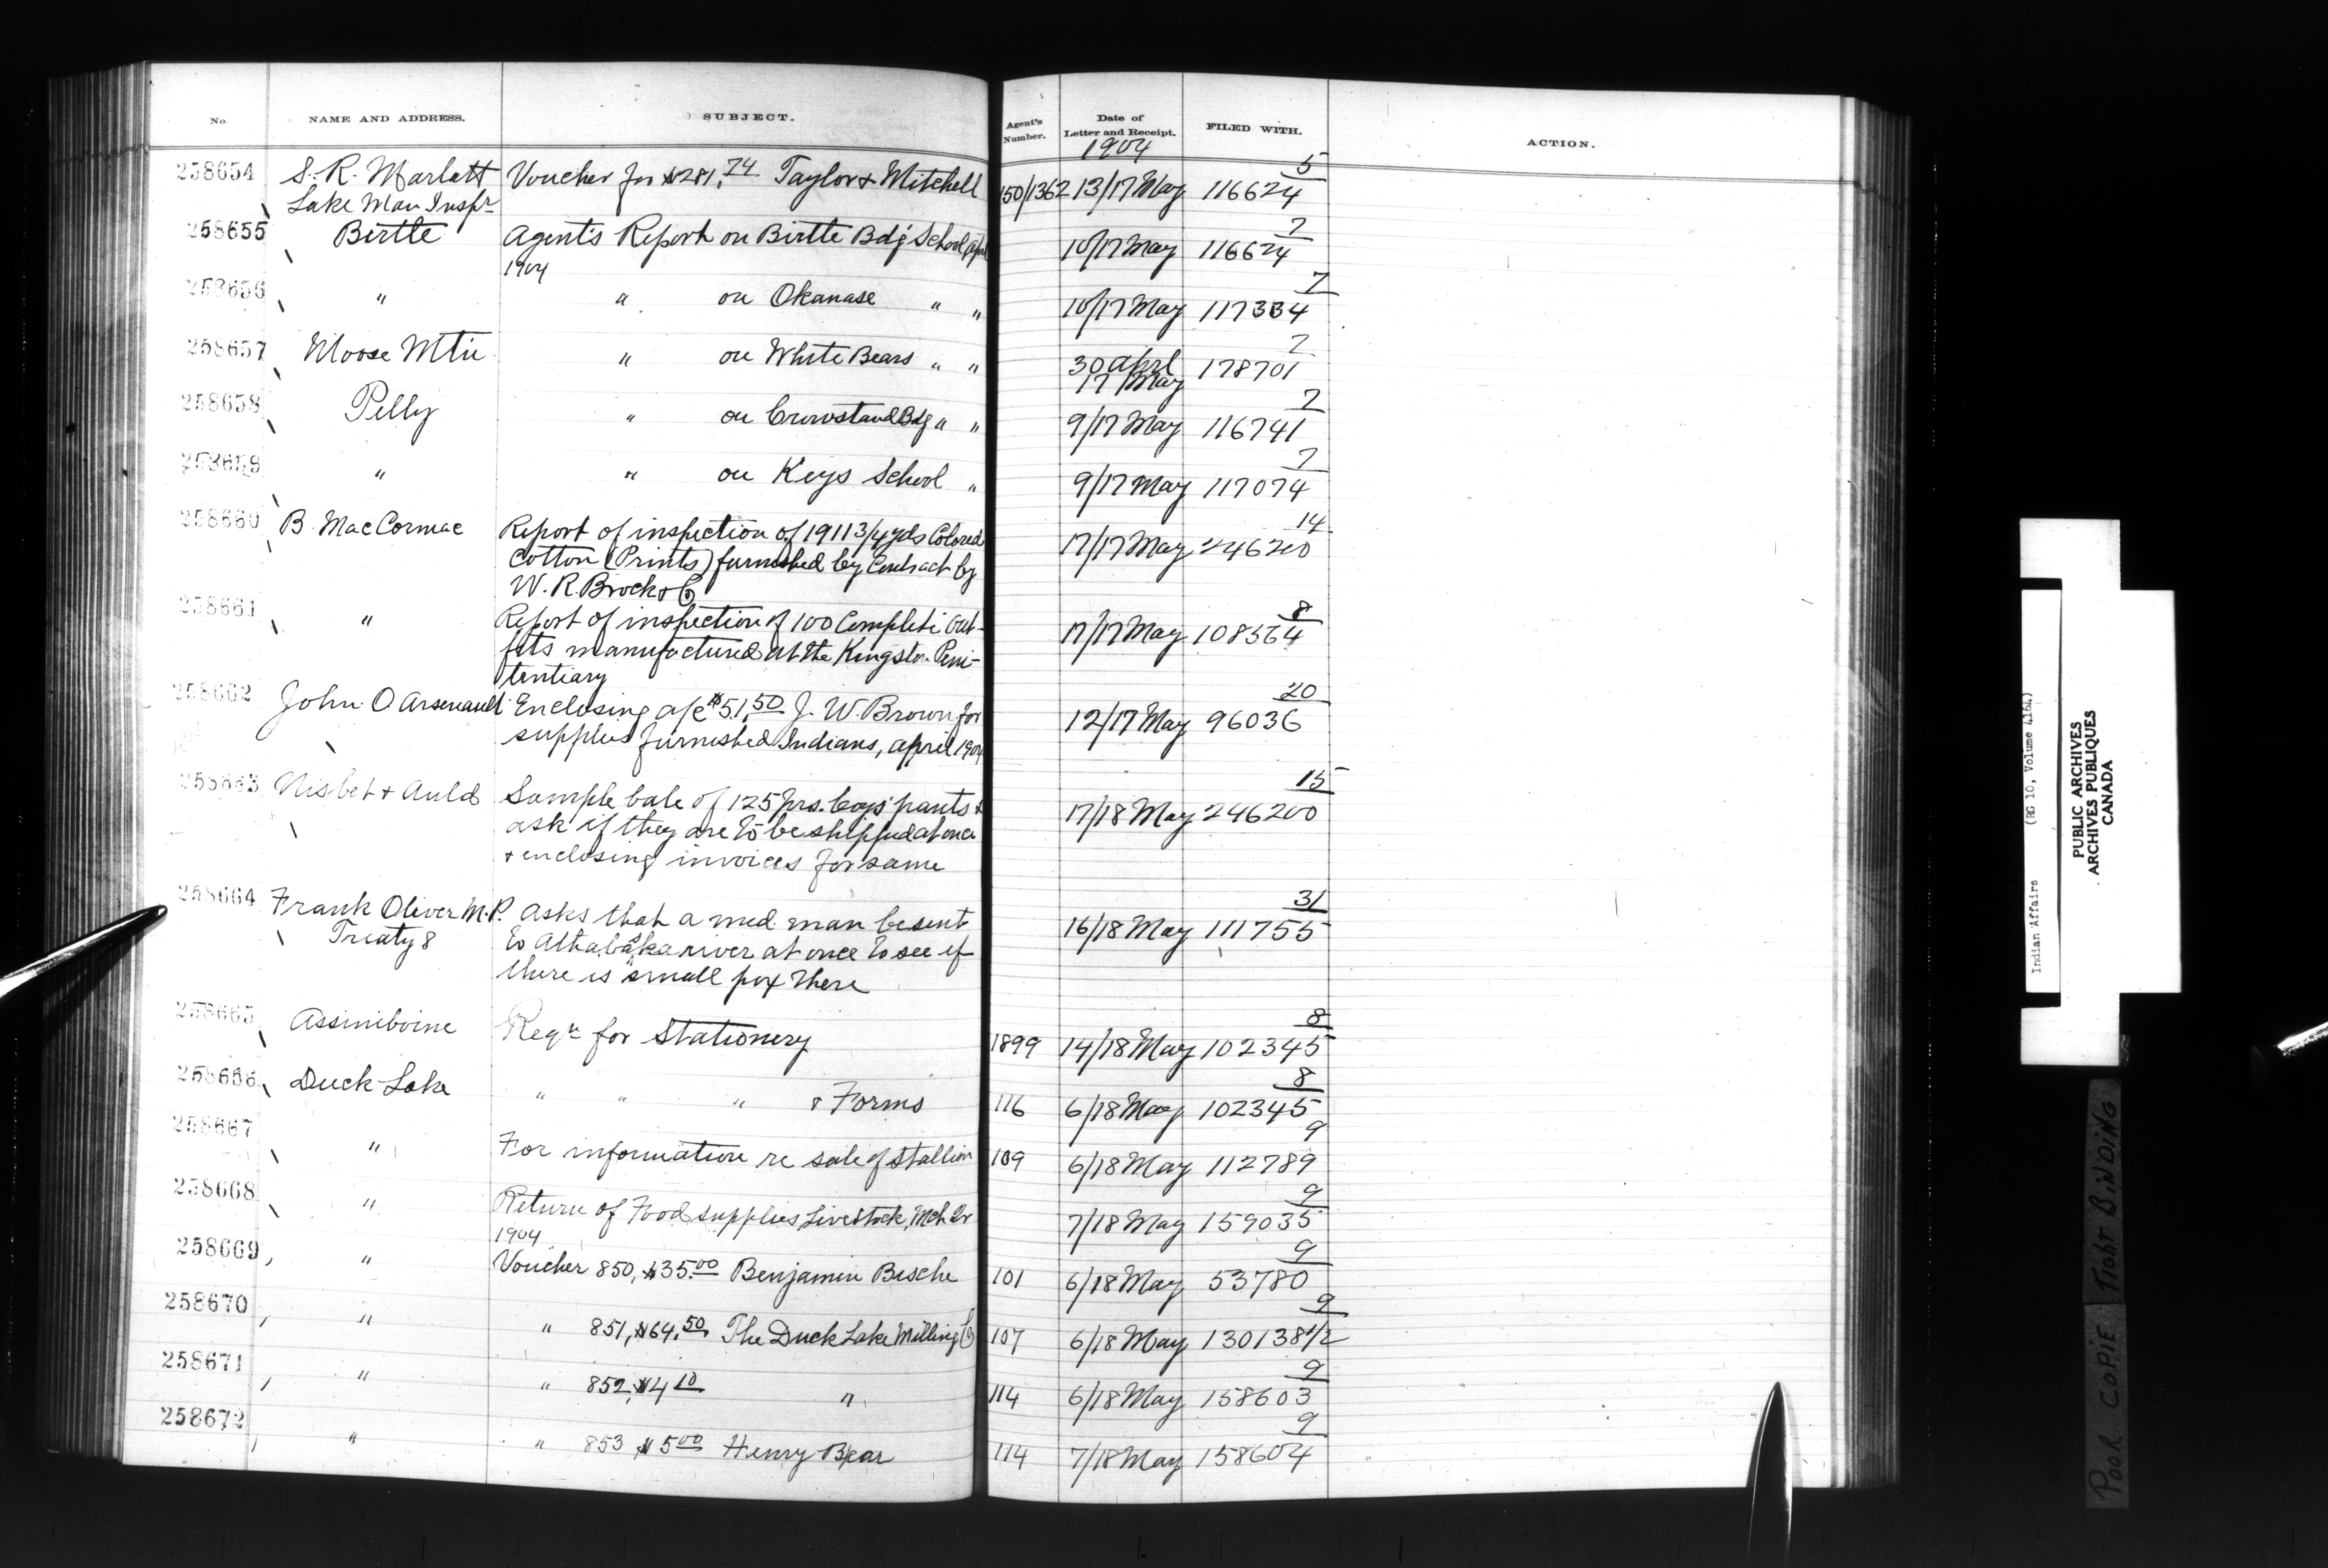 No. NAME AND ADDRESS. SUBJECT. Agent's Number. Date of Letter and Receipt. FILED WITH. ACTION.
1904
258654 S. R. Marlatt Voucher for $281.74 Taylor & Mitchell 150/1362 13/17 May 116624 5
Lake Man Inspr
258655 Birtle Agent's Report on Birtle Bdg School Apl 10/17 May 116624 7
1904
258656 " " on Okanase " " 10/17 May 117334 7
258657 Moose Mtn " on White Bears " " 30 April 178701 7
17 May
258658 Pelly " on Crowstand Bdg " " 9/17 May 116741 7
258659 " " on Keys School " 9/17 May 117074 7
258660 B. MacCormac Report of inspection of 1911 3/4 yds Colored 17/17 May 246200 14
Cotton (Prints) furnished by Contract by
W. R. Brock & Co
258661 " Report of inspection of 100 Complete Out- 17/17 May 108364 8
fits manufactured at the Kingston Peni-
tentiary
258662 John O Arsenault Enclosing a/c $51.50 J. W. Brown for 12/17 May 96036 20
supplies furnished Indians, April 1904
258663 Nisbet & Auld Sample bale of 125 prs. boys' pants & 17/18 May 246200 15
ask if they are to be shipped at once
& enclosing invoices for same
258664 Frank Oliver M.P. Asks that a med. man be sent 16/18 May 111755 31
Treaty 8 to Athabaska river at once to see if
there is small pox there
258665 Assiniboine Reqn for Stationery 1899 14/18 May 102345 8
258666 Duck Lake " " " & Forms 116 6/18 May 102345 8
258667 " For information re sale of Stallion 109 6/18 May 112789 9
258668 " Return of Food supplies, Livestock, Mch Qr 7/18 May 159035 9
1904
258669 " Voucher 850, $35.00 Benjamin Beche 101 6/18 May 53780 9
258670 " " 851, $64.50 The Duck Lake Milling Co 107 6/18 May 130138 1/2 9
258671 " " 852, $4.10 " 114 6/18 May 158603 9
258672 " " 853 $5.00 Henry Bear 114 7/18 May 158604 9
Indian Affairs (RG 10, Volume 4164)
PUBLIC ARCHIVES
ARCHIVES PUBLIQUES
CANADA
POOR COPIE TIGHT BINDING